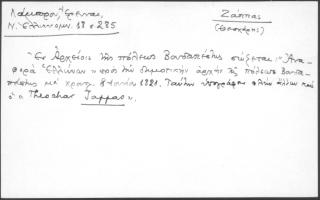 Λάμπρου, Ἔρευναι,
Ν. Ἑλληνομν. 18 σ 285
Ζάππας
(Θεοχάρης)
Ἐν Ἀρχείοις τῆς πόλεως Βουδαπέστης σώζεται: "Ἀνα-
φορὰ Ἑλλήνων" πρὸς τὴν δημοτικὴν ἀρχὴν τῆς πόλεως Βουδα-
πέστης μὲ χρον. 1821. Ταύτην ὑπογράφει πλὴν ἄλλων καὶ
ὁ "Theochar Zappas".